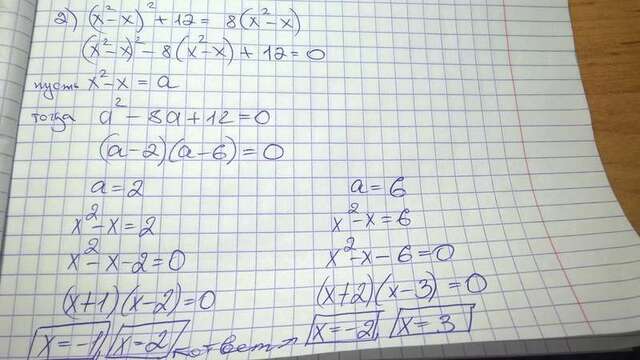 2) (x²-x)²+12= 8(x²-x)
(x²-x)²-8(x²-x)+12=0
пусть x²-x=a
тогда a²-8a+12=0
(a-2)(a-6)=0
a=2 a=6
x²-x=2 x²-x=6
x²-x-2=0 x²-x-6=0
(x+1)(x-2)=0 (x+2)(x-3)=0
x=-1, x=2 ← ответ → x=-2, x=3